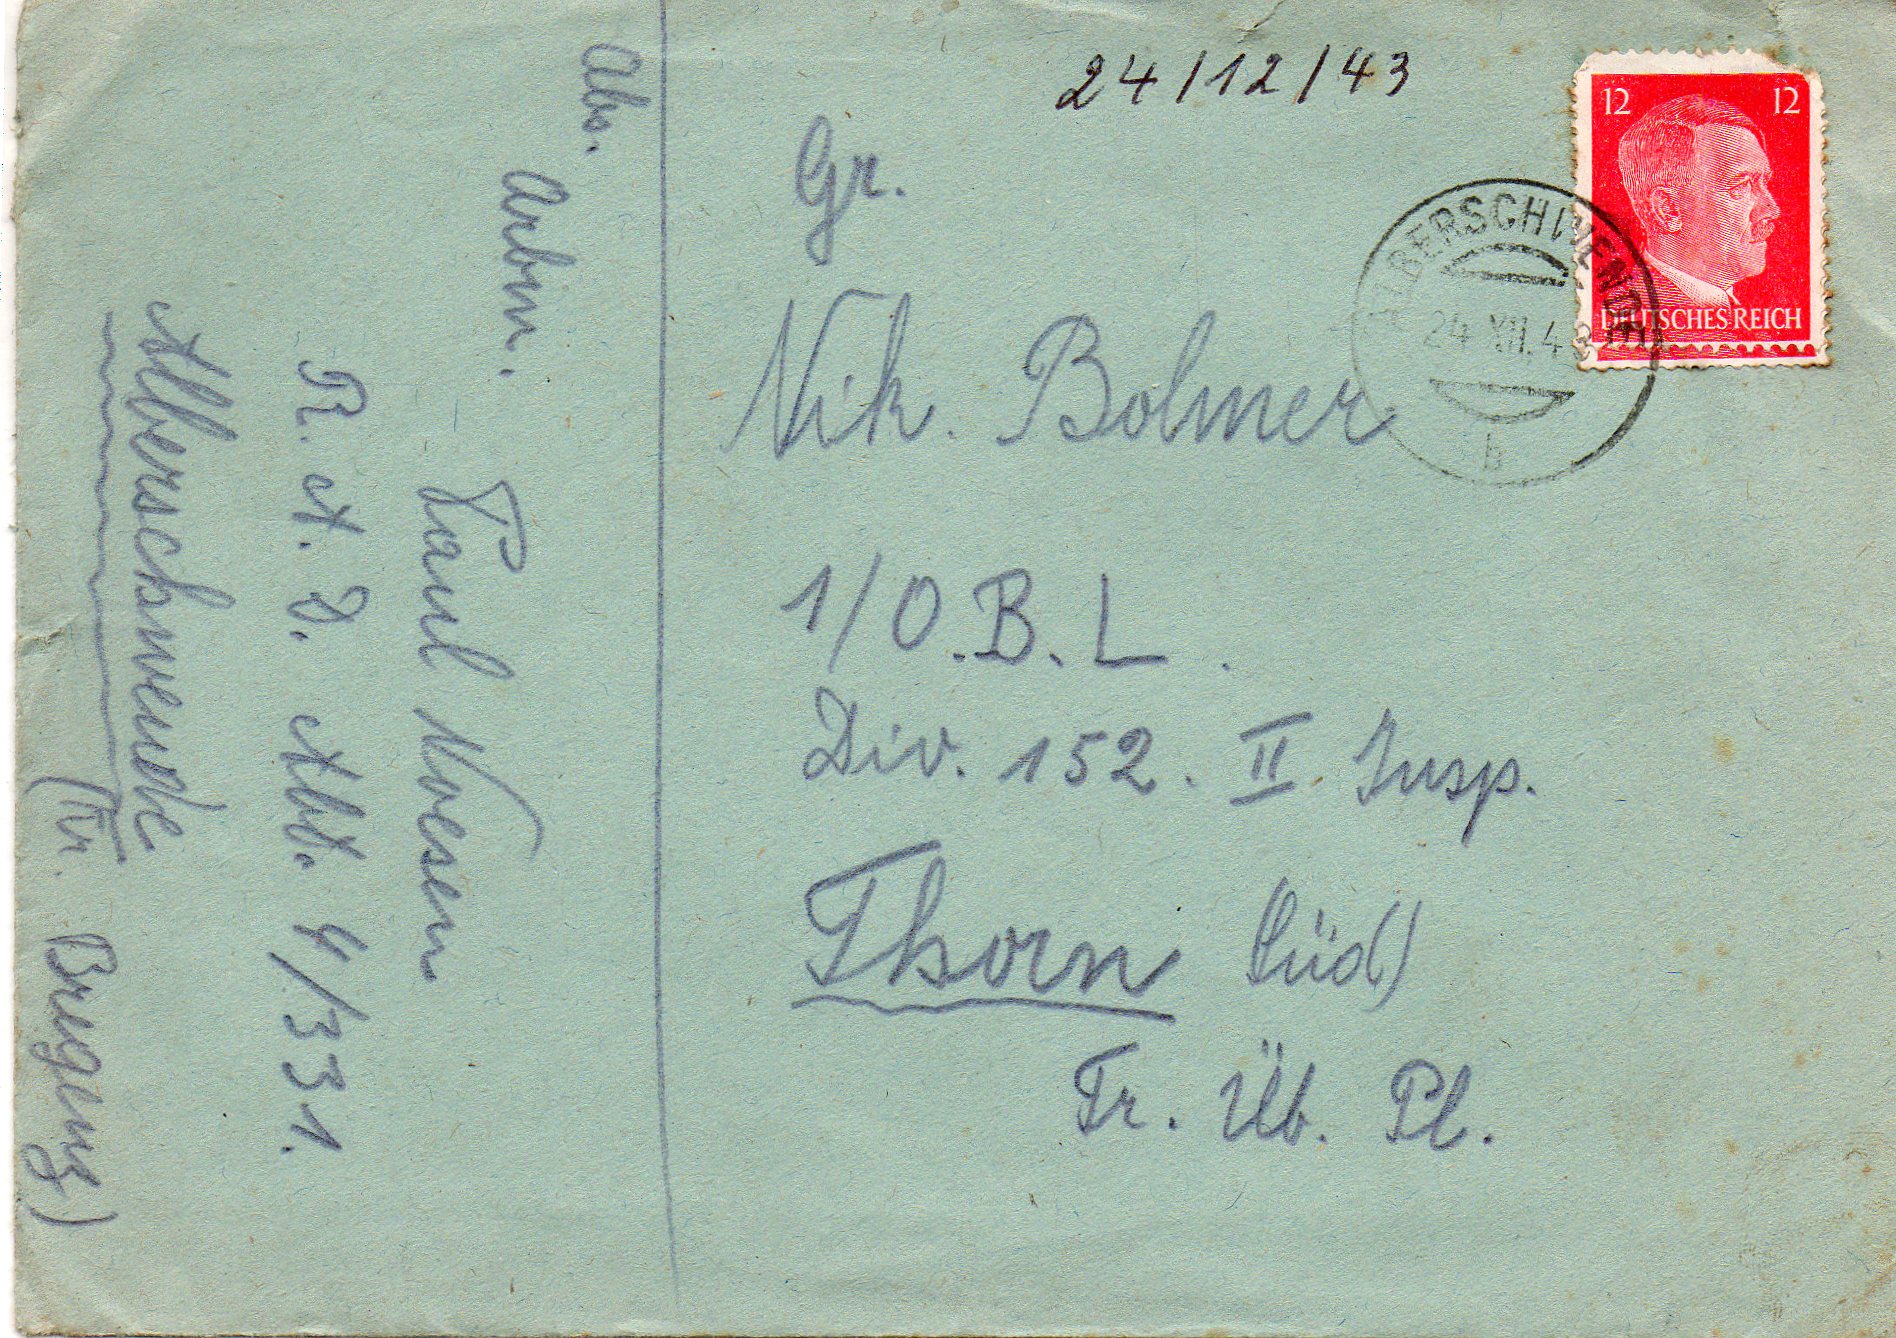 24/12/43
12 12
DEUTSCHES REICH
ALBERSCHWENDE
24.XII.43
b
Gr.
Nik. Bolmer
1/O.B.L.
Div. 152. II Insp.
Thorn (Süd)
Tr. Üb. Pl.
Abs.
Arbm.
Paul Noesen
R.A.D. Abt. 4/331.
Alberschwende
(Kr. Bregenz)